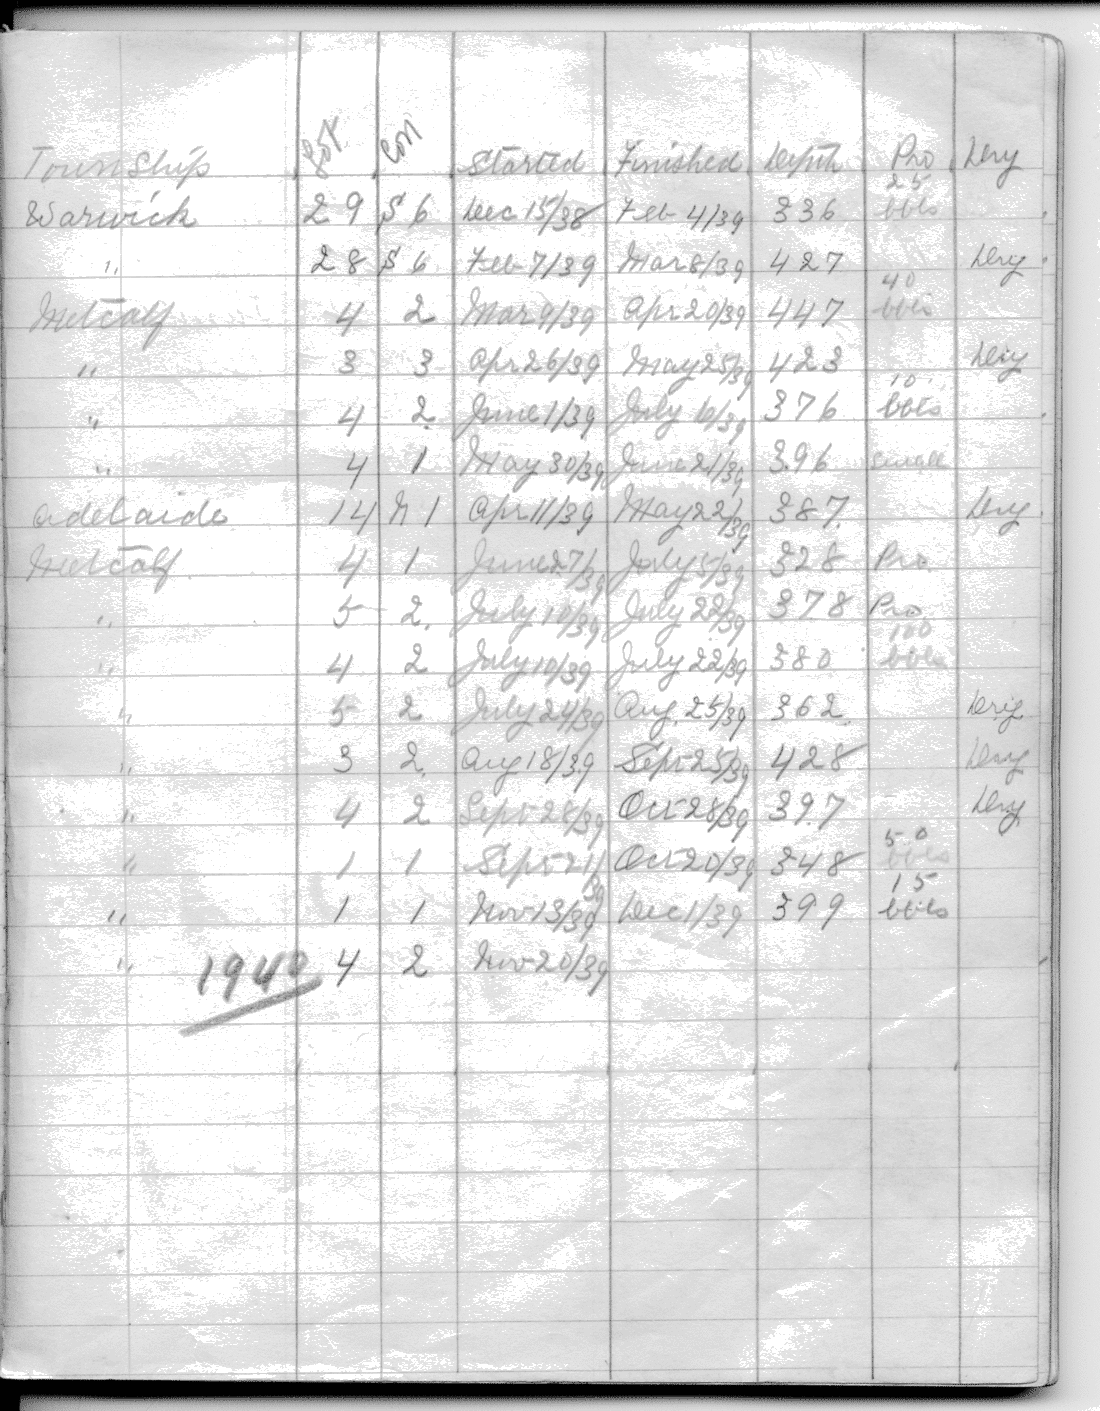 Township Lot Con Started Finished Depth Pro Dry
Warwick 29 S 6 Dec 15/38 Feb 4/39 336 25 bbls
" 28 S 6 Feb 7/39 Mar 8/39 427 Dry
Metcalf 4 2 Mar 9/39 Apr 20/39 447 40 bbls
" 3 3 Apr 26/39 May 25/39 423 Dry
" 4 2 June 1/39 July 6/39 376 10 bbls
" 4 1 May 30/39 June 21/39 396 small
Adelaide 14 N 1 Apr 11/39 May 22/39 387 Dry
Metcalf 4 1 June 27/39 July 5/39 328 Pro
" 5 2 July 10/39 July 22/39 378 Pro
" 4 2 July 10/39 July 22/39 380 100 bbls
" 5 2 July 24/39 Aug. 25/39 362 Dry
" 3 2 Aug 18/39 Sept 25/39 428 Dry
" 4 2 Sept 28/39 Oct 28/39 397 Dry
" 1 1 Sept 21/39 Oct 20/39 348 50 bbls
" 1 1 Nov 13/39 Dec 1/39 399 15 bbls
" 4 2 Nov 20/39
1940